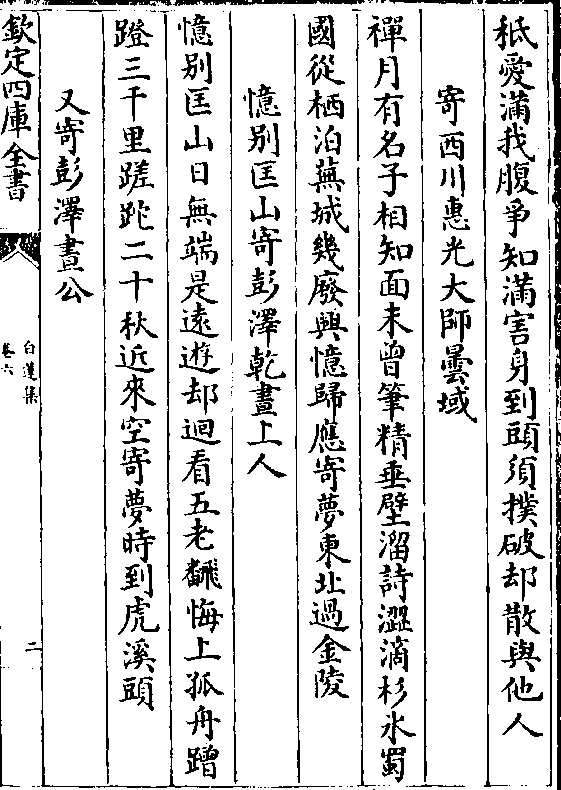 秪愛滿我腹爭知滿害身到頭須撲破却散與他人
寄西川惠光大師曇域
禪月有名子相知面未曾筆精垂壁溜詩澀滴杉氷蜀
國從栖泊蕪城幾廢興憶歸應寄夢東北過金陵
憶别匡山寄彭澤乾晝上人
憶别匡山日無端是遠遊却迴看五老翻悔上孤舟蹭
蹬三千里蹉跎二十秋近來空寄夢時到虎溪頭
又寄彭澤晝公
欽定四庫全書
白蓮集
卷六
二